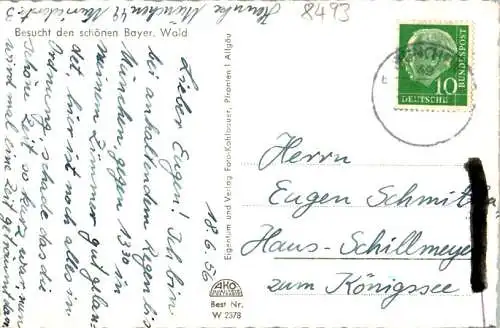 Heinke München 49 Muristr. 3
8493
Besucht den schönen Bayer. Wald
Lieber Eugen! Ich bin
bei anhaltendem Regen bis
München, gegen 13 30 in
meinem Zimmer gut gelan-
det, hier ist noch alles in
Ordnung, schade das die
schöne Zeit so kurz war, nun
wird mal eine Zeit geträumt
18.6.56
Eigentum und Verlag Foto-Kohlbauer, Pfronten i. Allgäu
AKO
Best Nr.
W 2378
MÜNCHEN
49
10
DEUTSCHE BUNDESPOST
Herrn
Eugen Schmitz
Haus-Schillmeyer
zum Königssee